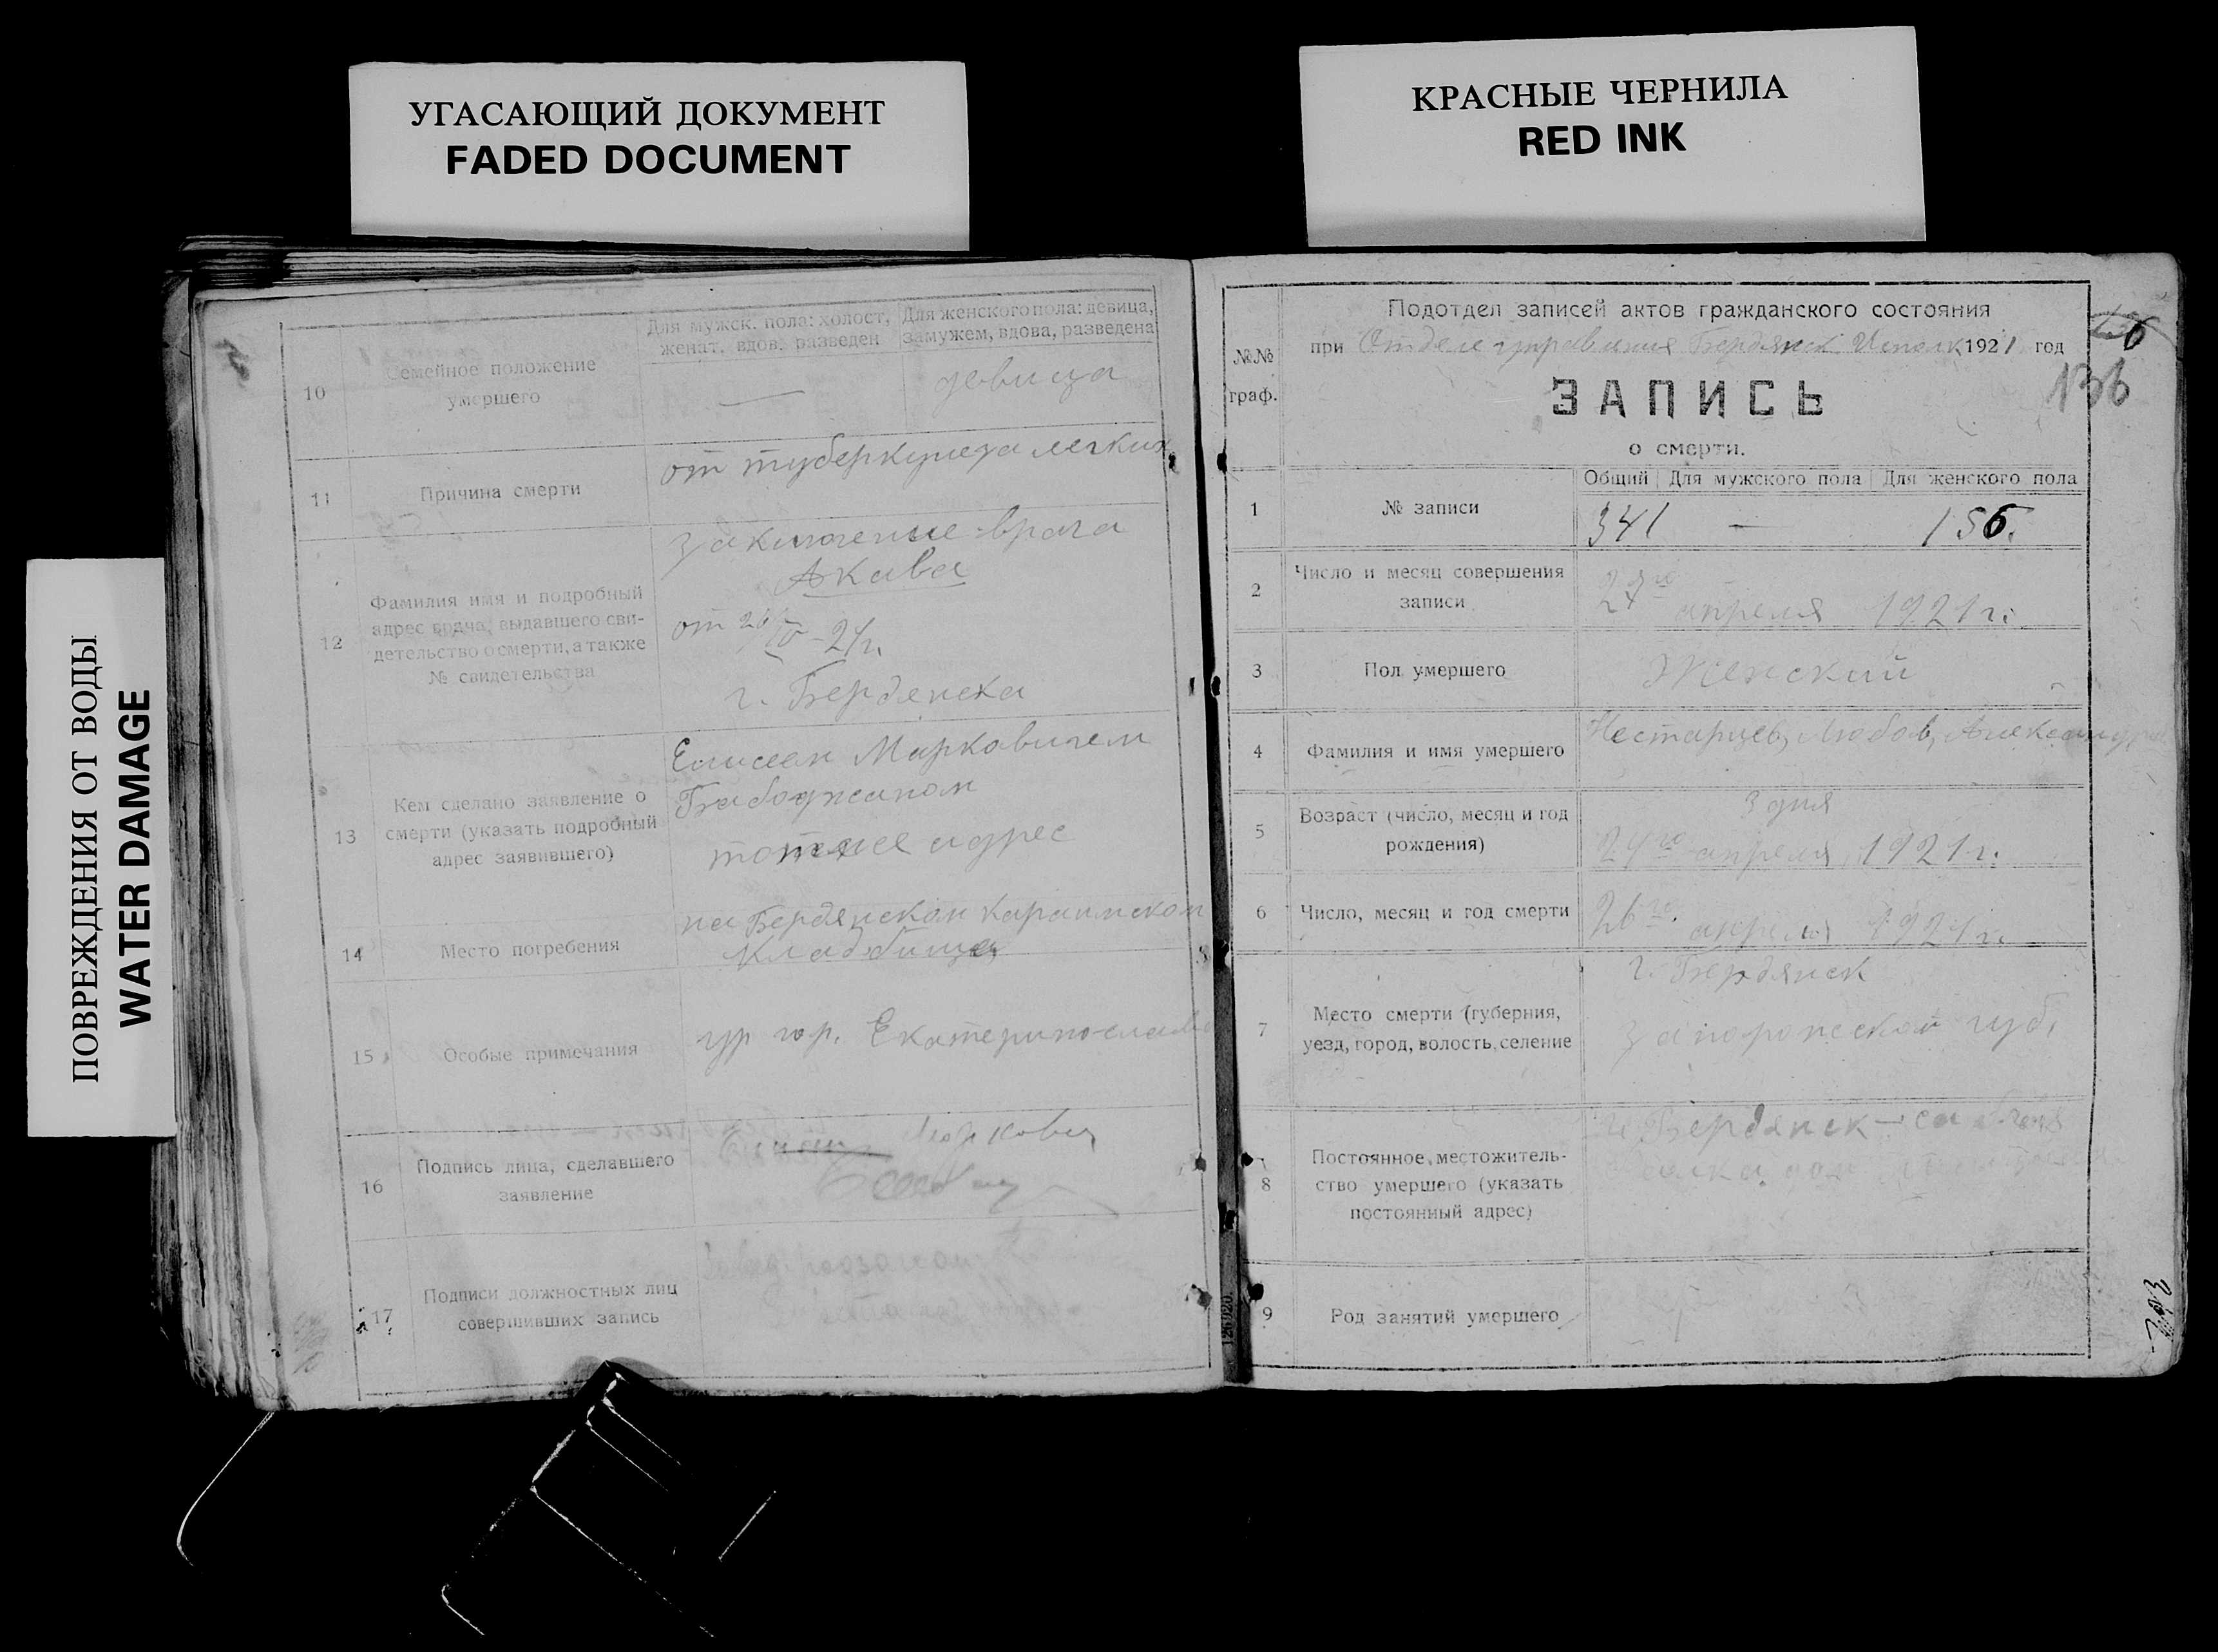 УГАСАЮЩИЙ ДОКУМЕНТ
FADED DOCUMENT
КРАСНЫЕ ЧЕРНИЛА
RED INK
ПОВРЕЖДЕНИЯ ОТ ВОДЫ
WATER DAMAGE
10
Семейное положение
умершего
Для мужск. пола: холост,
женат, вдов, разведен
Для женского пола: девица,
замужем, вдова, разведена
—
девица
11
Причина смерти
от туберкулеза легких
12
Фамилия имя и подробный
адрес врача, выдавшего сви-
детельство о смерти, а также
№ свидетельства
заключение врача
Акава
от 26/IV-21г.
г. Бердянска
13
Кем сделано заявление о
смерти (указать подробный
адрес заявившего)
Елисеем Марковичем
Бабаджаном
тот же адрес
14
Место погребения
на Бердянском караимском
кладбище
15
Особые примечания
гр гор. Екатеринослава
16
Подпись лица, сделавшего
заявление
Маркович
17
Подписи должностных лиц
совершивших запись
№№
граф.
Подотдел записей актов гражданского состояния
при Отделе управления Бердянск Исполк 1921 год
136
ЗАПИСЬ
о смерти.
1
№ записи
Общий Для мужского пола Для женского пола
341 — 156.
2
Число и месяц совершения
записи
апреля 1921 г.
3
Пол умершего
Женский
4
Фамилия и имя умершего
Любовь
5
Возраст (число, месяц и год
рождения)
3 дня
24го апреля 1921 г.
6
Число, месяц и год смерти
26го апреля 1921 г.
7
Место смерти (губерния,
уезд, город, волость, селение
г. Бердянск
Запорожской губ.
8
Постоянное местожитель-
ство умершего (указать
постоянный адрес)
г. Бердянск
9
Род занятий умершего
126920.